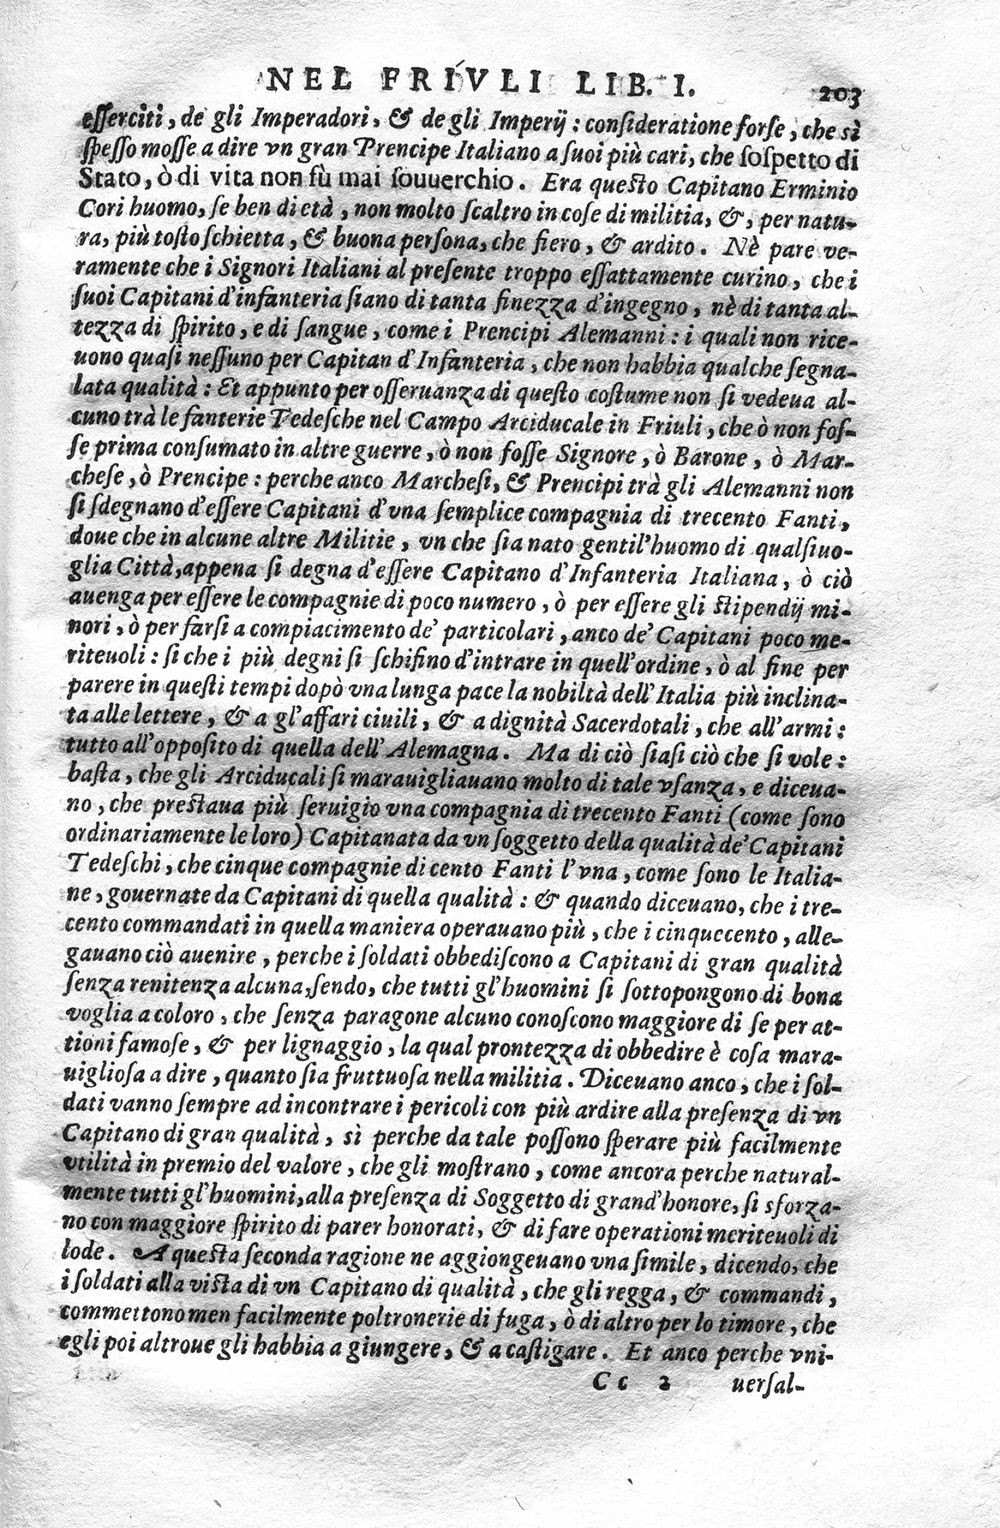 NEL FRIVLI LIB. I. 203
eſſerciti, de gli Imperadori, & de gli Imperij: conſideratione forſe, che sì
ſpeſſo moſſe a dire vn gran Prencipe Italiano a ſuoi più cari, che ſoſpetto di
Stato, ò di vita non fù mai ſouuerchio. Era queſto Capitano Erminio
Cori huomo, ſe ben di età, non molto ſcaltro in coſe di militia, &, per natu-
ra, più toſto ſchietta, & buona perſona, che fiero, & ardito. Nè pare ve-
ramente che i Signori Italiani al preſente troppo eſſattamente curino, che i
ſuoi Capitani d'infanteria ſiano di tanta finezza d'ingegno, nè di tanta al-
tezza di ſpirito, e di ſangue, come i Prencipi Alemanni: i quali non rice-
uono quaſi neſſuno per Capitan d'Infanteria, che non habbia qualche ſegna-
lata qualità: Et appunto per oſſeruanza di queſto coſtume non ſi vedeua al-
cuno trà le fanterie Tedeſche nel Campo Arciducale in Friuli, che ò non foſ-
ſe prima conſumato in altre guerre, ò non foſſe Signore, ò Barone, ò Mar-
cheſe, ò Prencipe: perche anco Marcheſi, & Prencipi trà gli Alemanni non
ſi ſdegnano d'eſſere Capitani d'vna ſemplice compagnia di trecento Fanti,
doue che in alcune altre Militie, vn che ſia nato gentil'huomo di qualſiuo-
glia Città, appena ſi degna d'eſſere Capitano d'Infanteria Italiana, ò ciò
auenga per eſſere le compagnie di poco numero, ò per eſſere gli ſtipendij mi-
nori, ò per farſi a compiacimento de' particolari, anco de' Capitani poco me-
riteuoli: ſi che i più degni ſi ſchifino d'intrare in quell'ordine, ò al fine per
parere in queſti tempi dopò vna lunga pace la nobiltà dell'Italia più inclina-
ta alle lettere, & a gl'affari ciuili, & a dignità Sacerdotali, che all'armi:
tutto all'oppoſito di quella dell'Alemagna. Ma di ciò ſiaſi ciò che ſi vole:
baſta, che gli Arciducali ſi marauigliauano molto di tale vſanza, e diceua-
no, che preſtaua più ſeruigio vna compagnia di trecento Fanti (come ſono
ordinariamente le loro) Capitanata da vn ſoggetto della qualità de' Capitani
Tedeſchi, che cinque compagnie di cento Fanti l'vna, come ſono le Italia-
ne, gouernate da Capitani di quella qualità: & quando diceuano, che i tre-
cento commandati in quella maniera operauano più, che i cinquecento, alle-
gauano ciò auenire, perche i ſoldati obbediſcono a Capitani di gran qualità
ſenza renitenza alcuna, ſendo, che tutti gl'huomini ſi ſottopongono di bona
voglia a coloro, che ſenza paragone alcuno conoſcono maggiore di ſe per at-
tioni famoſe, & per lignaggio, la qual prontezza di obbedire è coſa mara-
uiglioſa a dire, quanto ſia fruttuoſa nella militia. Diceuano anco, che i ſol-
dati vanno ſempre ad incontrare i pericoli con più ardire alla preſenza di vn
Capitano di gran qualità, sì perche da tale poſſono ſperare più facilmente
vtilità in premio del valore, che gli moſtrano, come ancora perche natural-
mente tutti gl'huomini, alla preſenza di Soggetto di grand'honore, ſi sforza-
no con maggiore ſpirito di parer honorati, & di fare operationi meriteuoli di
lode. A queſta ſeconda ragione ne aggiongeuano vna ſimile, dicendo, che
i ſoldati alla viſta di vn Capitano di qualità, che gli regga, & commandi,
commettono men facilmente poltronerie di fuga, ò di altro per lo timore, che
egli poi altroue gli habbia a giungere, & a caſtigare. Et anco perche vni-
Cc 2 uerſal-